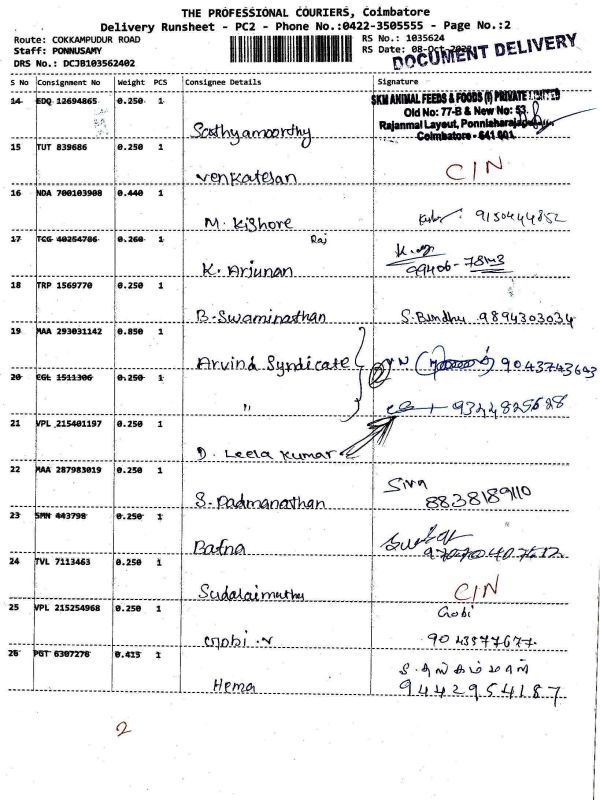 THE PROFESSIONAL COURIERS, Coimbatore
Delivery Runsheet - PC2 - Phone No.:0422-3505555 - Page No.:2
Route: COKKAMPUDUR ROAD
RS No.: 1035624
Staff: PONNUSAMY
RS Date: 08-Oct-
DOCUMENT DELIVERY
DRS No.: DCJB103562402
S No Consignment No Weight PCS Consignee Details Signature
14 EDQ 12694865 0.250 1
SKM ANIMAL FEEDS & FOODS (I) PRIVATE LIMITED
Old No: 77-B & New No: 53,
Rajanmal Layout,
Coimbatore - 641 001.
Sathyamoorthy
15 TUT 839686 0.250 1
Venkatesan C/N
16 NDA 700103908 0.440 1
M. Kishore 9150444852
17 TCG 40254786 0.260 1
Raj
K. Arjunan 99406-
18 TRP 1569770 0.250 1
B. Swaminathan S. Bindhu 9894303034
19 MAA 293031142 0.850 1
Arvind Syndicate 9043743663
20 CGL 1511306 0.250 1
" 9344825628
21 VPL 215401197 0.250 1
D. Leela Kumar
22 MAA 287983019 0.250 1
Siva
S. Padmanathan 8838189110
23 SMN 443798 0.250 1
Bafna
24 TVL 7113463 0.250 1
Sudalaimuthu C/N
25 VPL 215254968 0.250 1
Gobi
Gobi. V 9043577677
26 PGT 6307276 0.415 1
Hema 9442954187
2